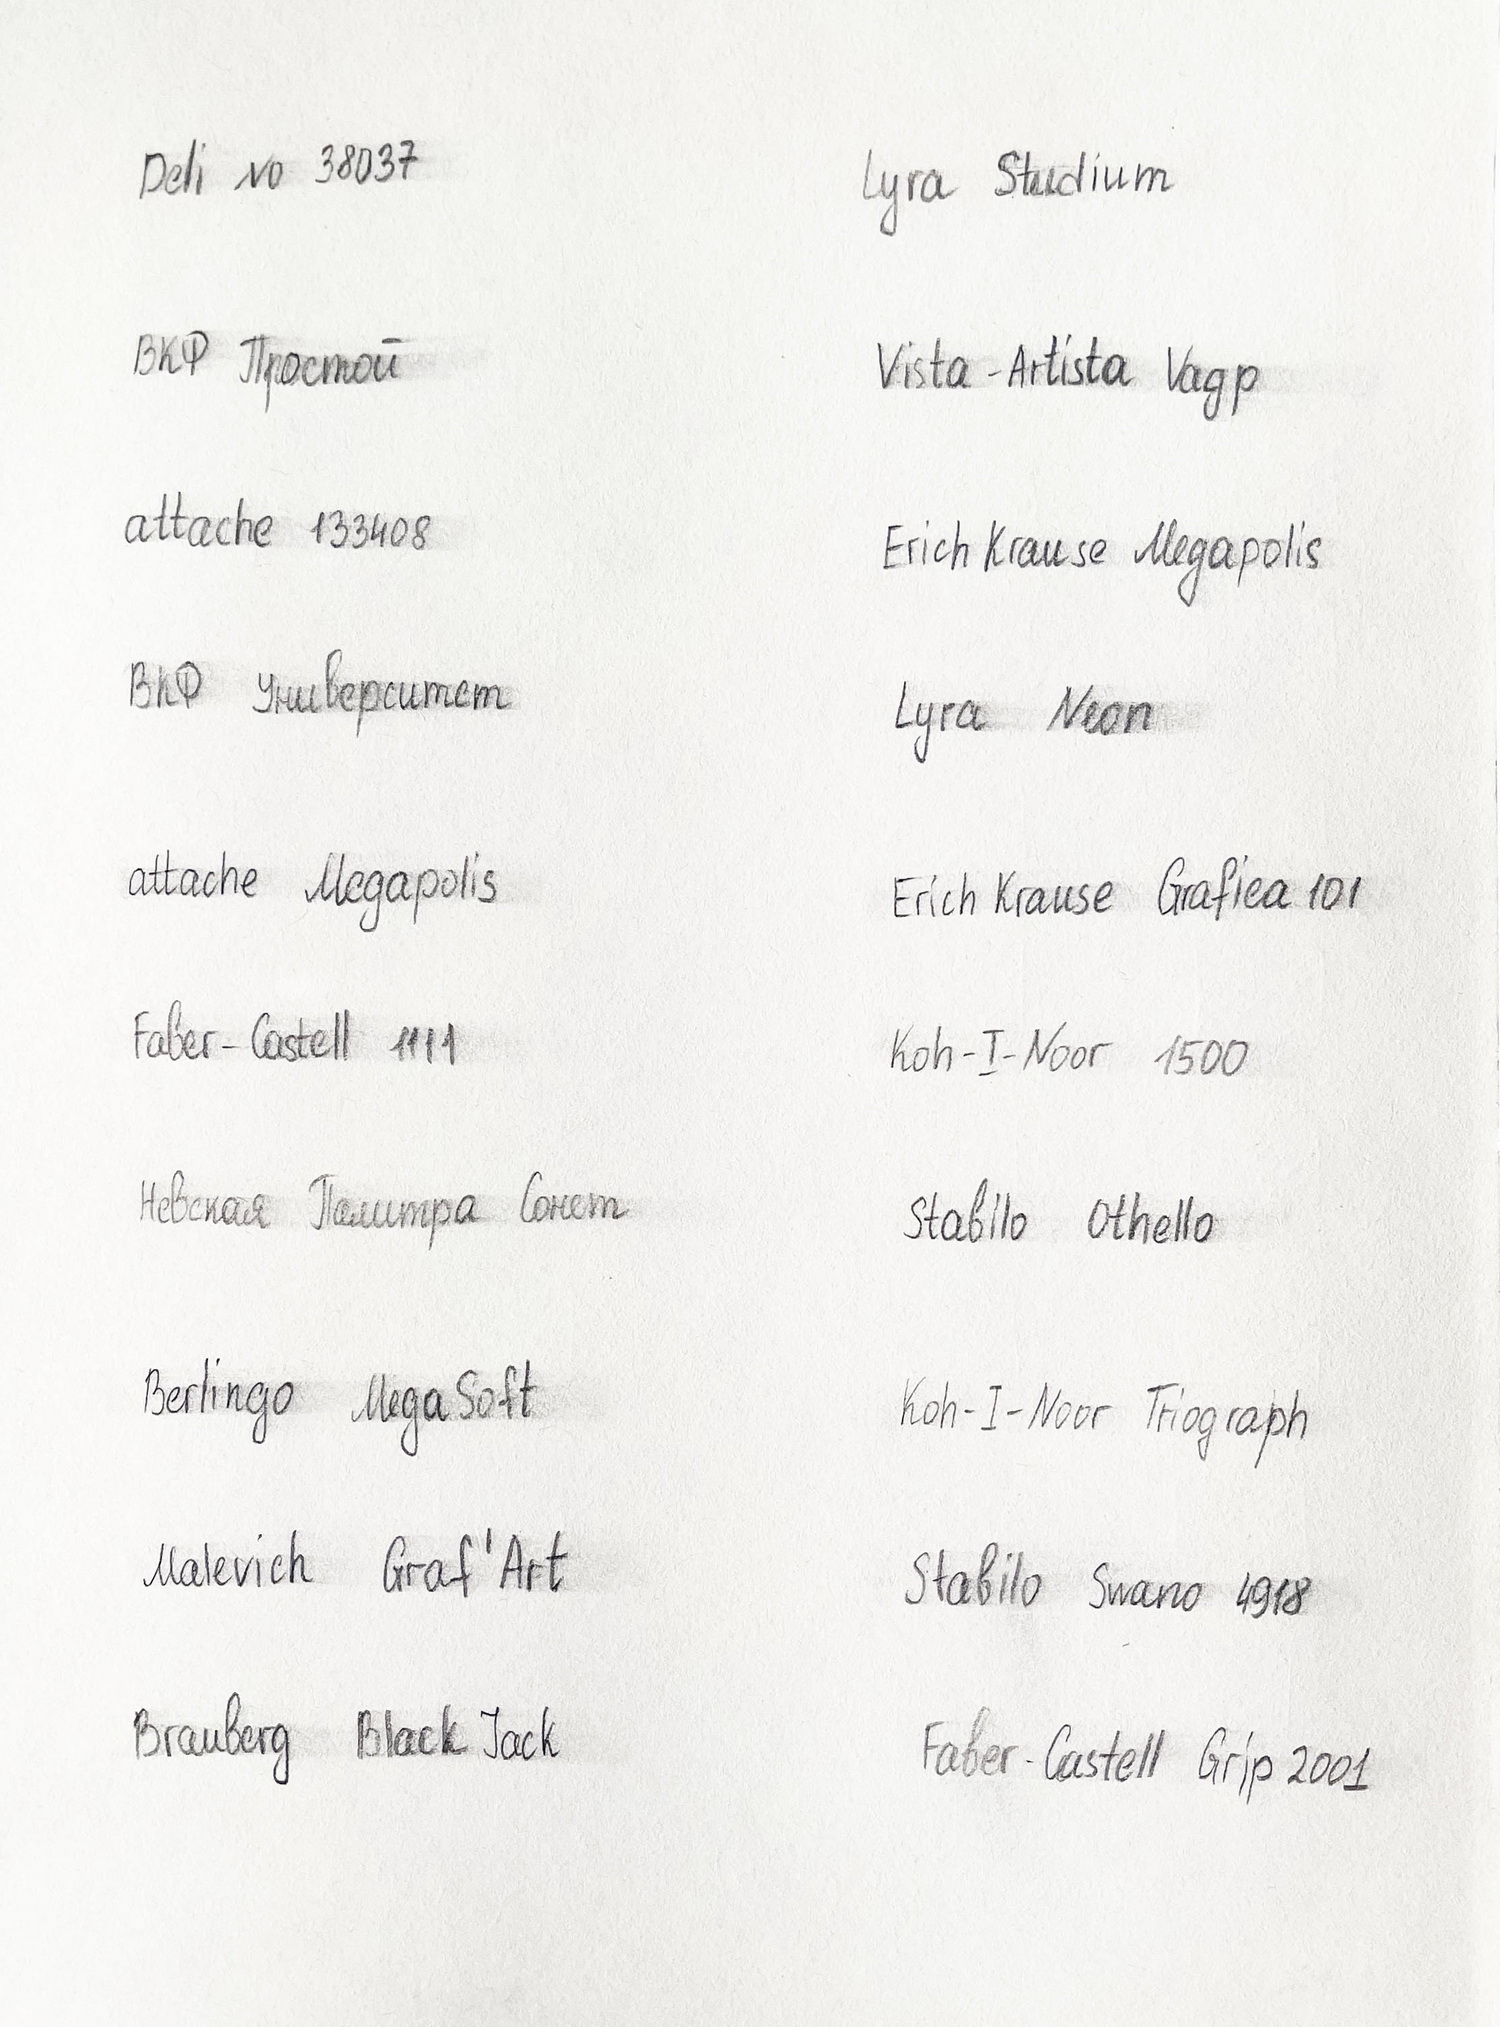 Deli no 38037
ВКФ Простой
attache 133408
ВКФ Университет
attache Megapolis
Faber-Castell 1111
Невская Палитра Сонет
Berlingo MegaSoft
Malevich Graf'Art
Brauberg Black Jack
Lyra Studium
Vista-Artista Vagp
Erich Krause Megapolis
Lyra Neon
Erich Krause Grafica 101
Koh-I-Noor 1500
Stabilo Othello
Koh-I-Noor Triograph
Stabilo Swano 4918
Faber-Castell Grip 2001